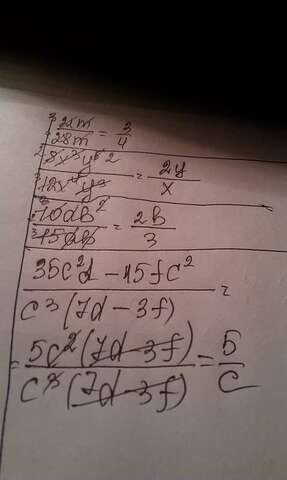 21m
28m = 3/4
= 2y/x
10ab²
15ab = 2b/3
35c²d - 15fc²
c³(7d - 3f) =
= 5c²(7d - 3f)
c³(7d - 3f) = 5/c